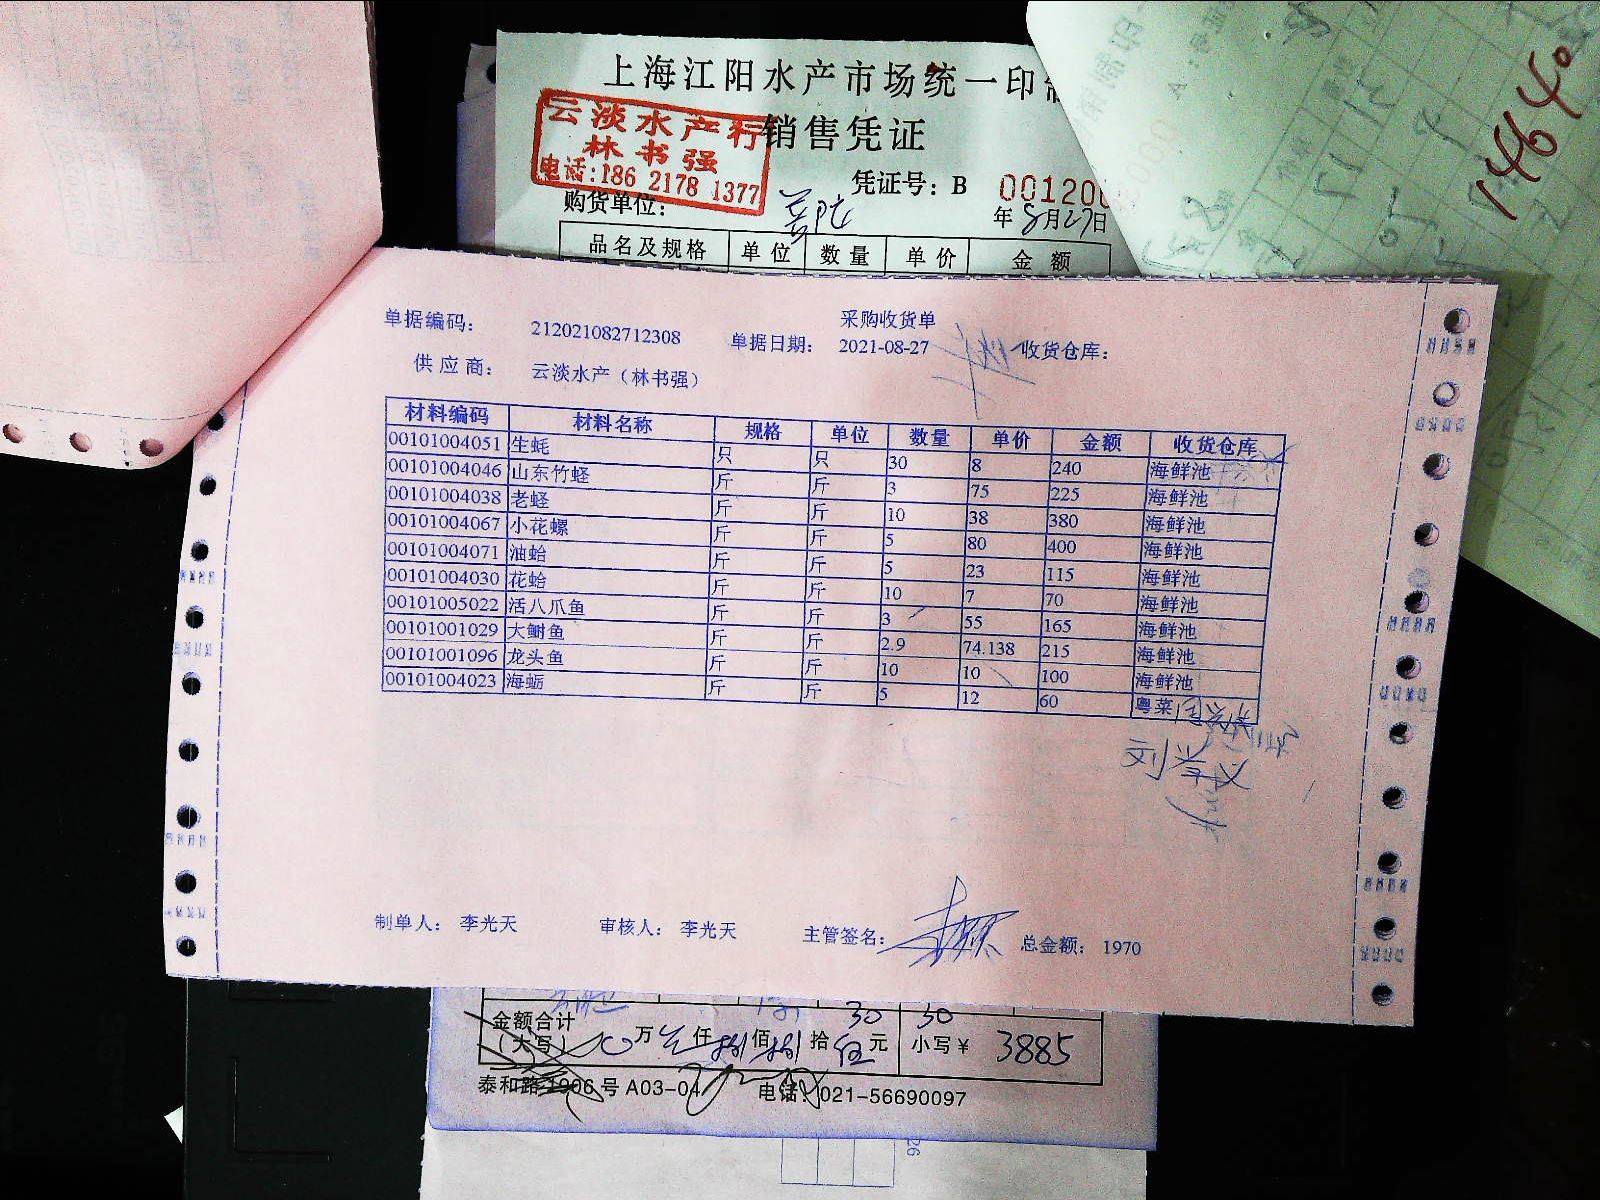 上海江阳水产市场统一印制
云淡水产行
林书强
电话:186 2178 1377
销售凭证
凭证号: B 001200
购货单位:
年8月27日
品名及规格 单位 数量 单价 金额
14640
采购收货单
单据编码: 212021082712308 单据日期: 2021-08-27 收货仓库:
供应商: 云淡水产（林书强）
材料编码 材料名称 规格 单位 数量 单价 金额 收货仓库
00101004051 生蚝 只 只 30 8 240 海鲜池
00101004046 山东竹蛏 斤 斤 3 75 225 海鲜池
00101004038 老蛏 斤 斤 10 38 380 海鲜池
00101004067 小花螺 斤 斤 5 80 400 海鲜池
00101004071 油蛤 斤 斤 5 23 115 海鲜池
00101004030 花蛤 斤 斤 10 7 70 海鲜池
00101005022 活八爪鱼 斤 斤 3 55 165 海鲜池
00101001029 大鲋鱼 斤 斤 2.9 74.138 215 海鲜池
00101001096 龙头鱼 斤 斤 10 10 100 海鲜池
00101004023 海蛎 斤 斤 5 12 60 粤菜
刘学义
制单人: 李光天 审核人: 李光天 主管签名: 总金额: 1970
30 30
金额合计
（大写） 万 仟 捌佰 捌拾 伍元 小写￥ 3885
泰和路1906号A03-04 电话: 021-56690097